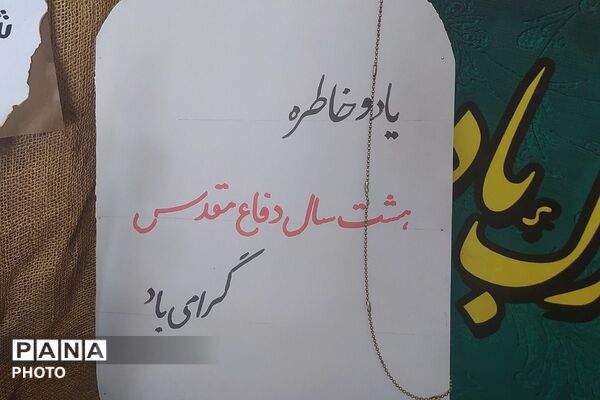 یاد و خاطره
هشت سال دفاع مقدس
گرامی باد
باد
PANA
PHOTO